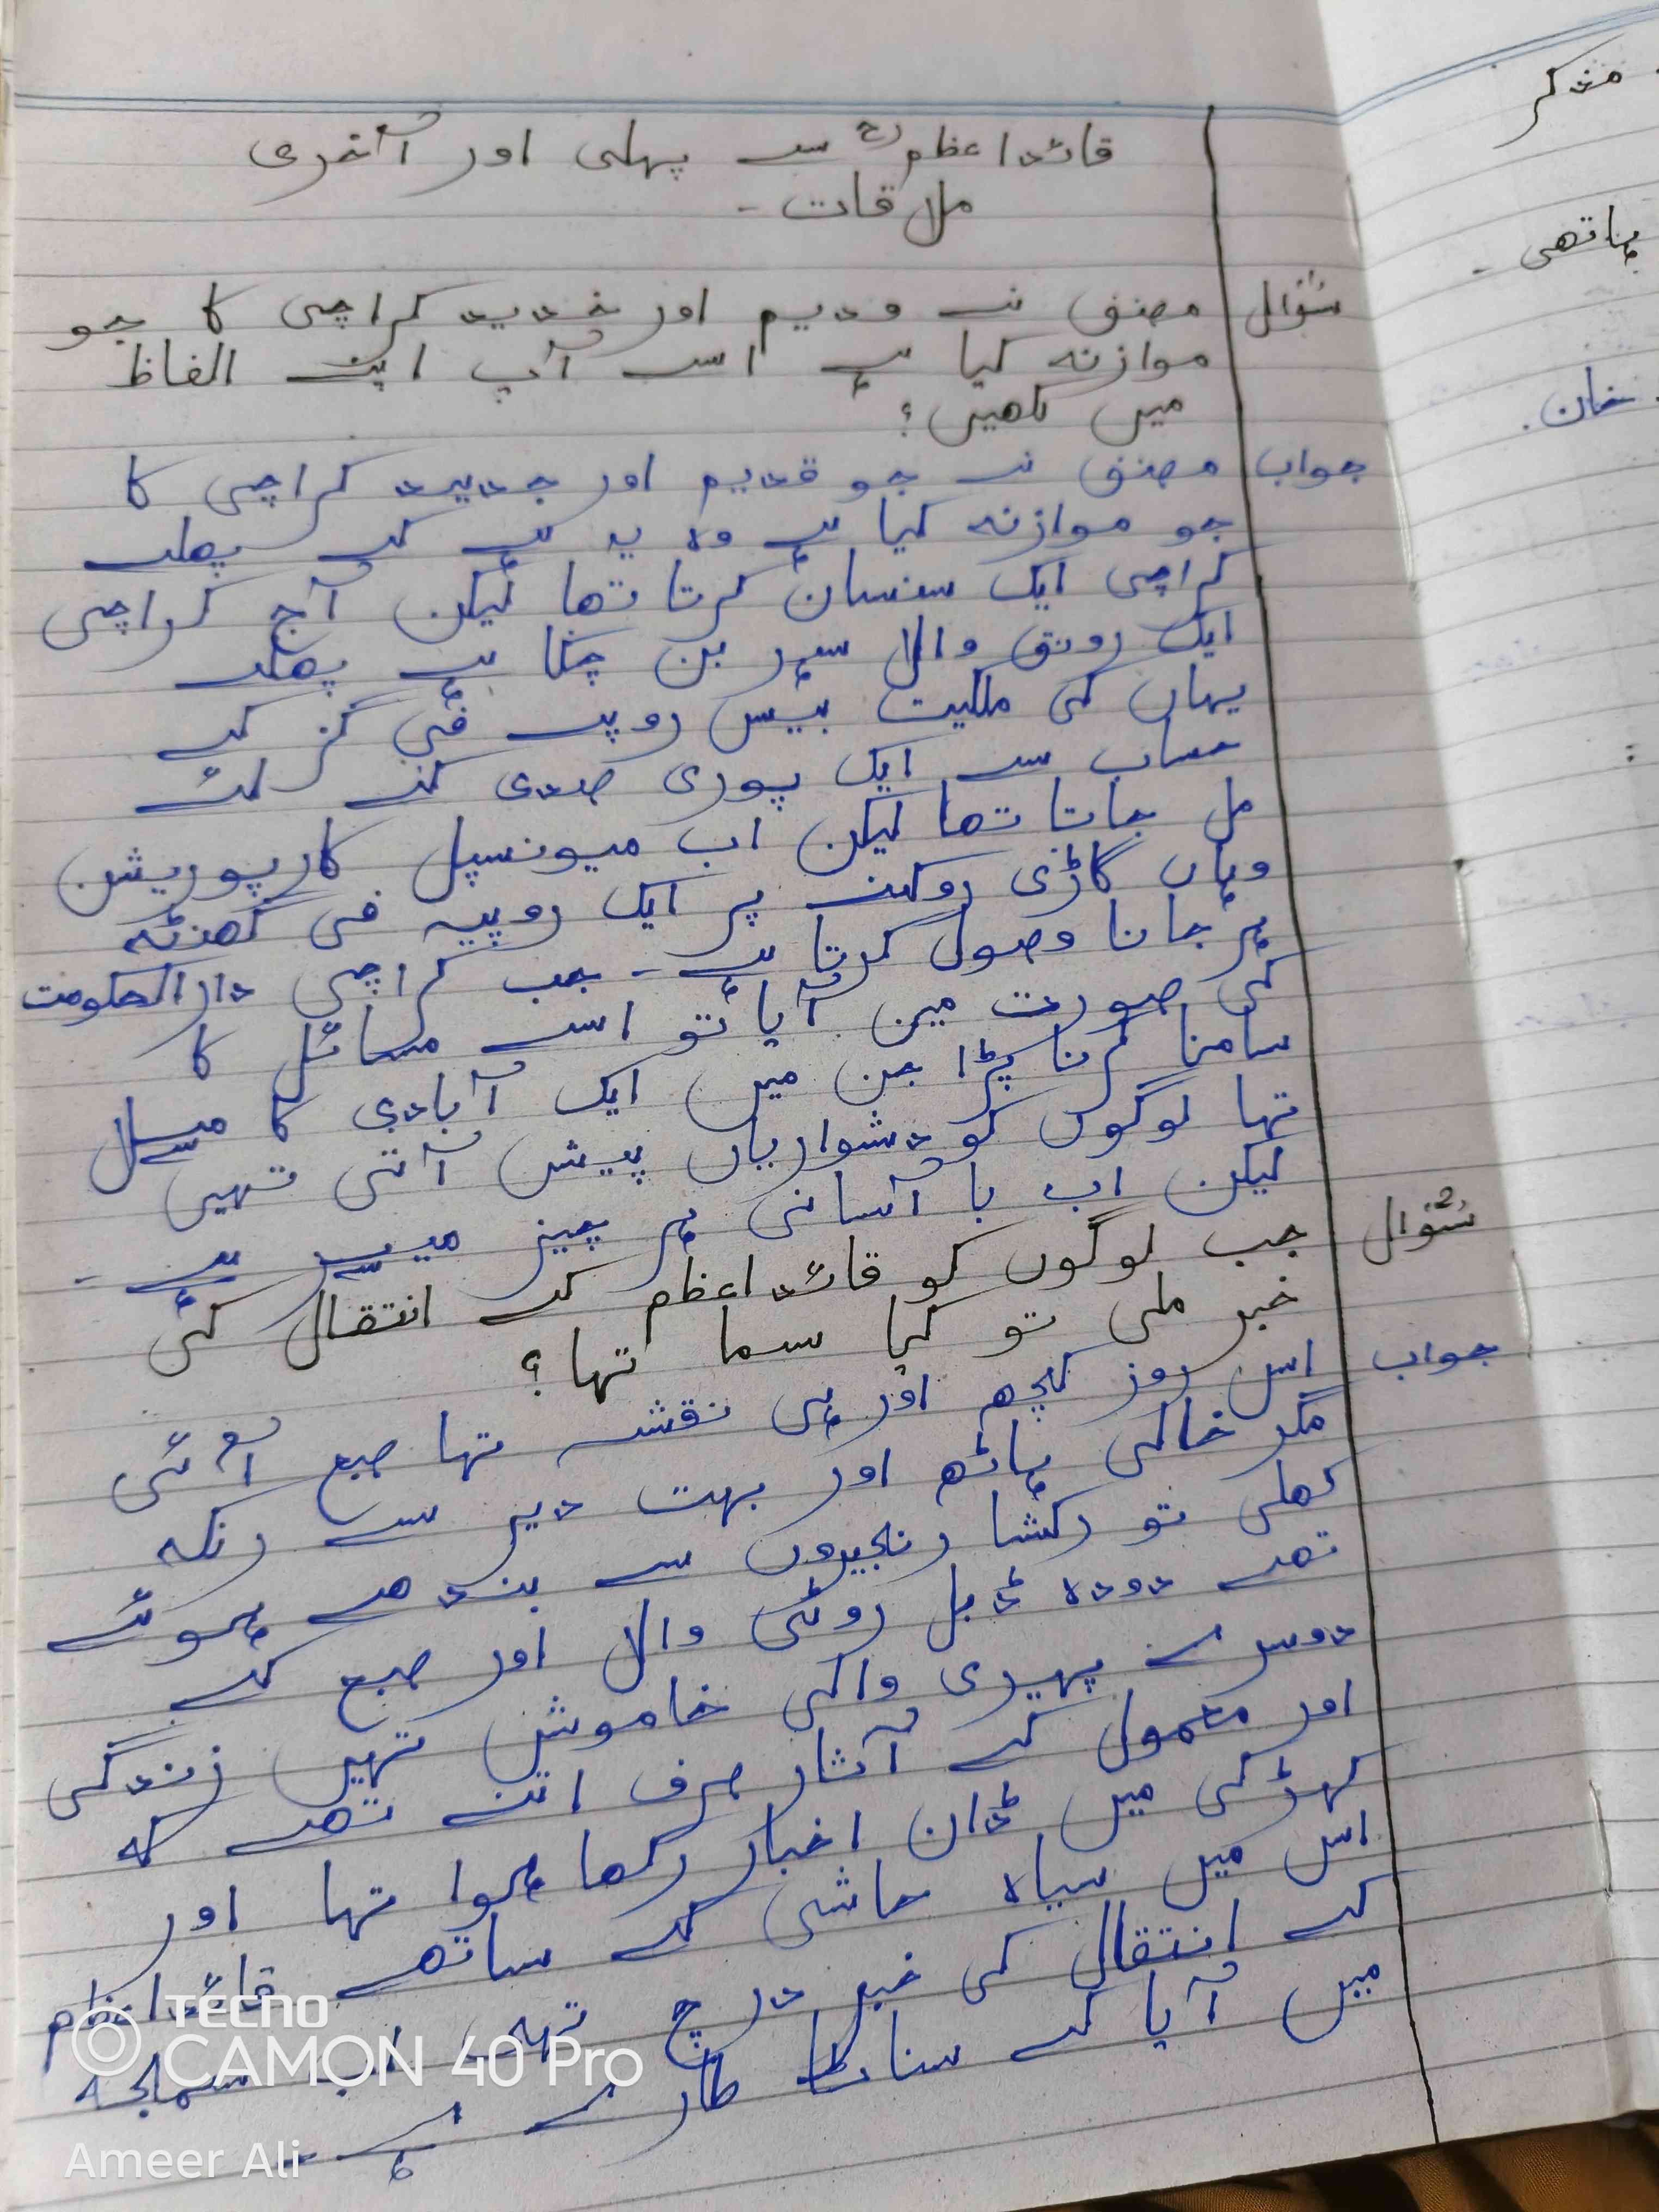 قائداعظمؒ سے پہلی اور آخری
ملاقات۔
سؤال مصنف نے قدیم اور جدید کراچی کا جو
موازنہ کیا ہے اسے آپ اپنے الفاظ
میں لکھیں؟
جواب مصنف نے جو قدیم اور جدید کراچی کا
جو موازنہ کیا ہے وہ یہ ہے کے پھلے
کراچی ایک سنسان کرتا تھا لیکن آج کراچی
ایک رونق والا بن چکا ہے پھلے
یہاں کی ملکیت بیس روپے فی گز کے
حساب سے ایک پوری صدی کے لئے
مل جاتا تھا لیکن اب میونسپل کارپوریشن
وہاں گاڑی روکنے پر ایک روپیہ فی گھنٹہ
ہرجانا وصول کرتا ہے۔ جب کراچی دارالحکومت
کی صورت میں آیا تو اسے مسائل کا
سامنا کرنا پڑا جن میں ایک آبادی کا
تہا لوگوں کو دشواریاں پیش آتی تہیں
لیکن اب با آسانی ہر چیز میسر ہے۔
سؤال جب لوگوں کو قائداعظم کے انتقال کی
خبر ملی تو کیا سما تہا؟
جواب اس روز کچھ اور ہی نقشہ تہا صبع آئی
مگر خالی ہاتھ اور بہت دیر سے
کھلی تو رکشا زنجیروں سے بندھے ہوئے
تھے دودہ ڈبل روٹی والا اور صبع کے
دوسرے پہیری والی خاموش تہیں زندگی
اور معمول کے آثار صرف اتنے تھے کہ
کہڑکی میں ڈان اخبار رکھا ہوا تہا اور
اس میں سیاہ حاشی کے ساتھ قائداعظم
کے انتقال کی خبر درج تہی
میں آیا کے سناٹا
مذکر
خان
TECNO
CAMON 40 Pro
Ameer Ali